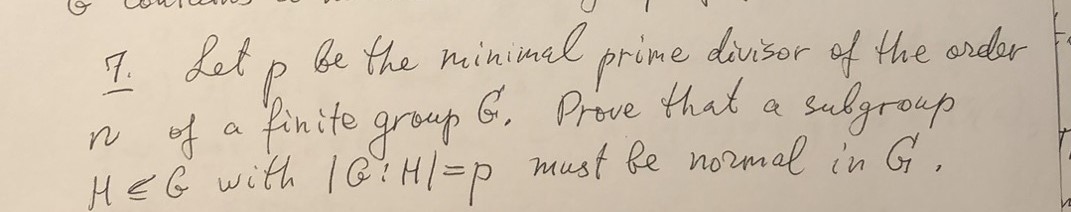 7. Let p be the minimal prime divisor of the order
n of a finite group G. Prove that a subgroup
H ≤ G with |G:H|=p must be normal in G.